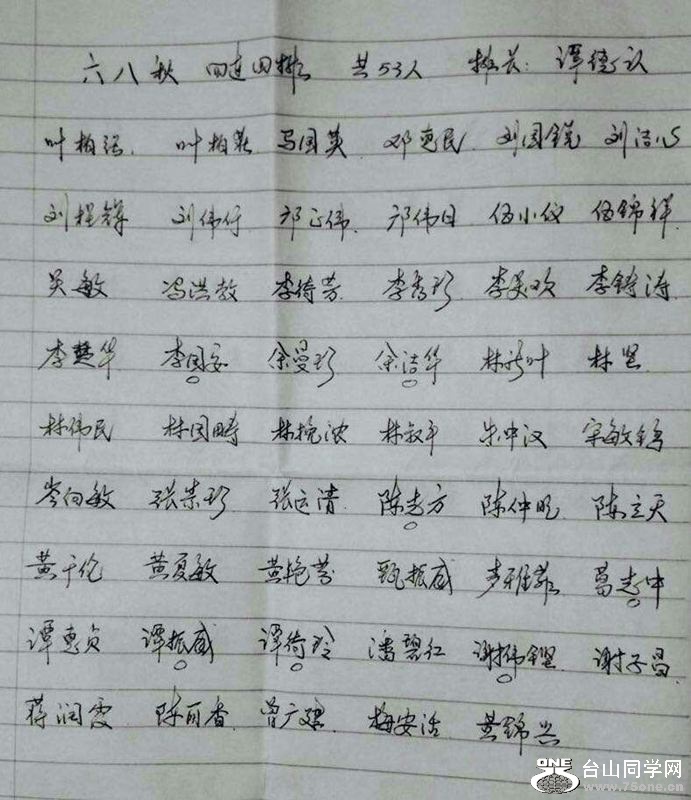 六八秋 四连四排 共53人 排长: 谭德认
叶柏强 叶柏燕 马国英 邓惠民 刘国锐 刘洁心
刘栏锋 刘伟行 邝正伟 邝伟日 伍小仪 伍锦祥
吴敏 冯洪教 李待芳 李秀珍 李美欢 李铸涛
李楚华 李国安 余曼珍 余洁华 林彩叶 林坚
林伟民 林国畴 林挽浓 林叙平 朱中汉
岑向敏 张崇珍 张运清 陈志方 陈仲明 陈立天
黄千伦 黄夏敏 黄艳芳 甄振威 麦雅龄 葛志中
谭惠贞 谭振威 谭待玲 潘碧红 谢锦坚 谢子昌
蒋润霞 陈百香 曾广璐 梅安活 黄锦兴
ONE 台山同学网
www.75one.cn